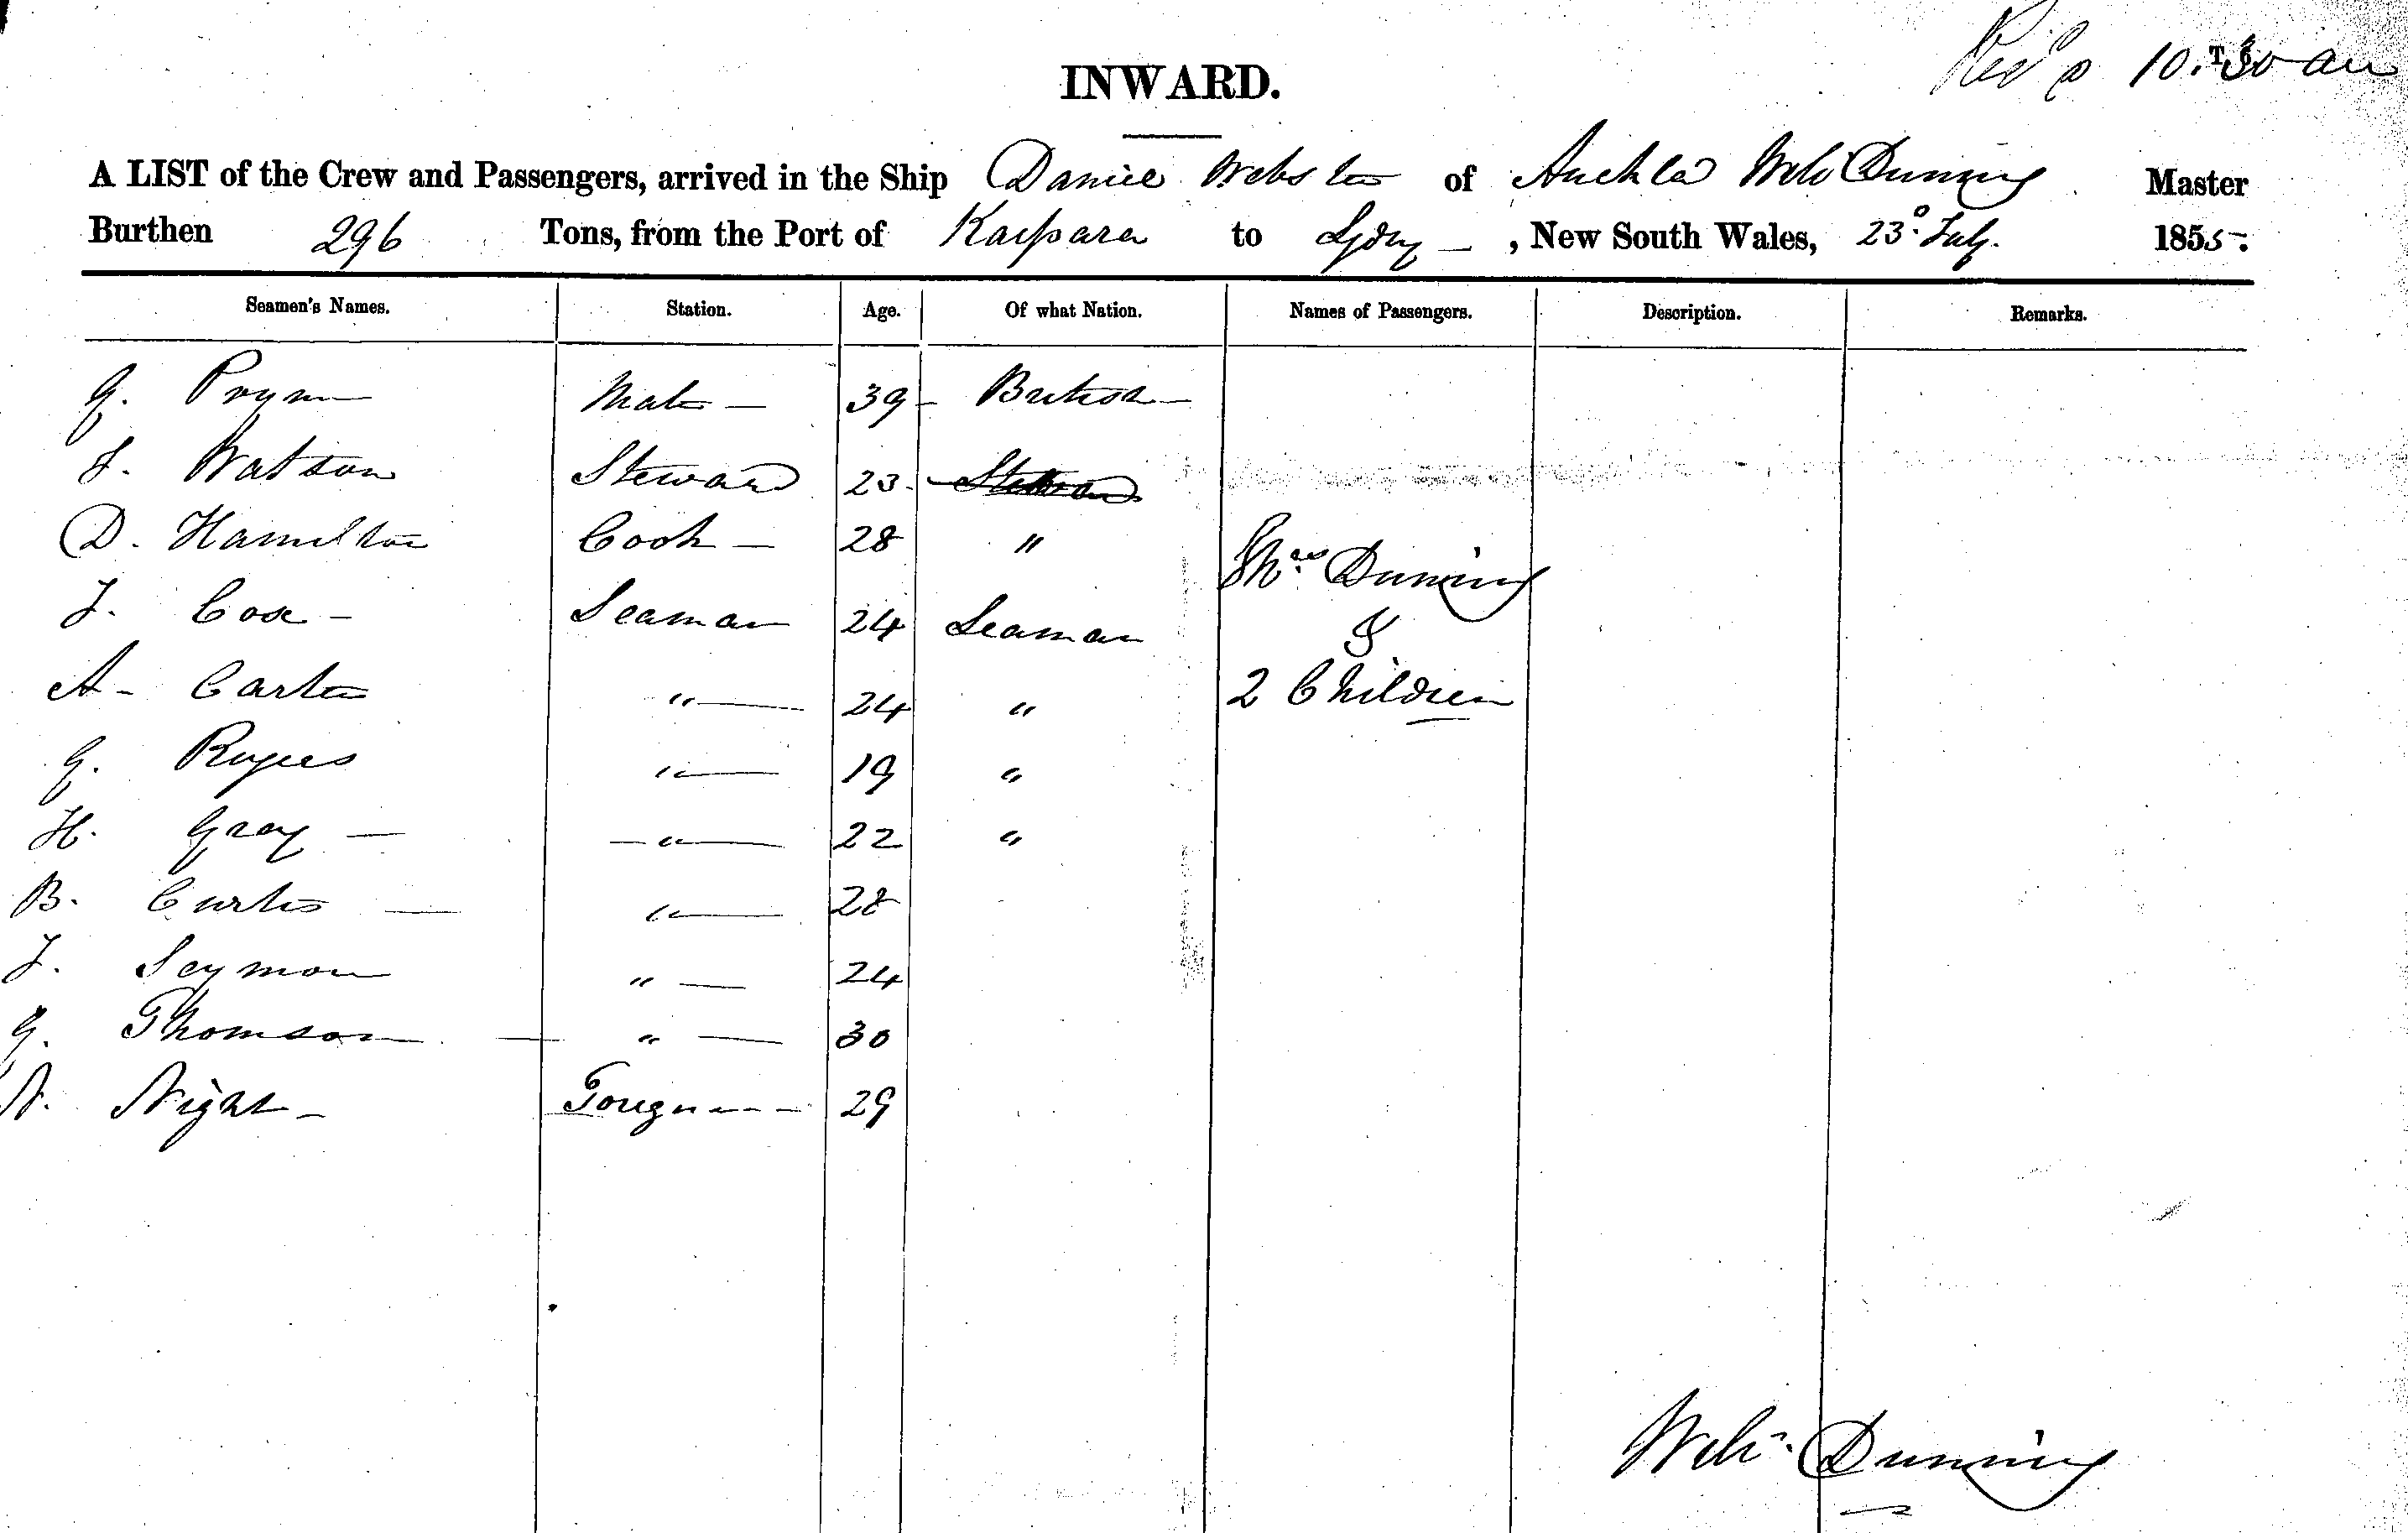 Rec'd 10.30 am
INWARD.
A LIST of the Crew and Passengers, arrived in the Ship Daniel Webster of Auckld Wm Dunning Master
Burthen 296 Tons, from the Port of Kaipara to Sydney — , New South Wales, 23d July. 1855.
Seamen's Names. Station. Age. Of what Nation. Names of Passengers. Description. Remarks.
G. Prynn Mate — 39 — British —
J. Watson Steward 23 - Steward
D. Hamilton Cook — 28 "
Mrs Dunning
J. Cox - Seaman 24 Seaman &
A - Carter " 24 " 2 Children
G. " 19 "
H. Gray — " 22 "
B. Curtis — " 28
J. Seymour " — 24
G. Thomson — " — 30
N. Night - 29
Wm. Dunning